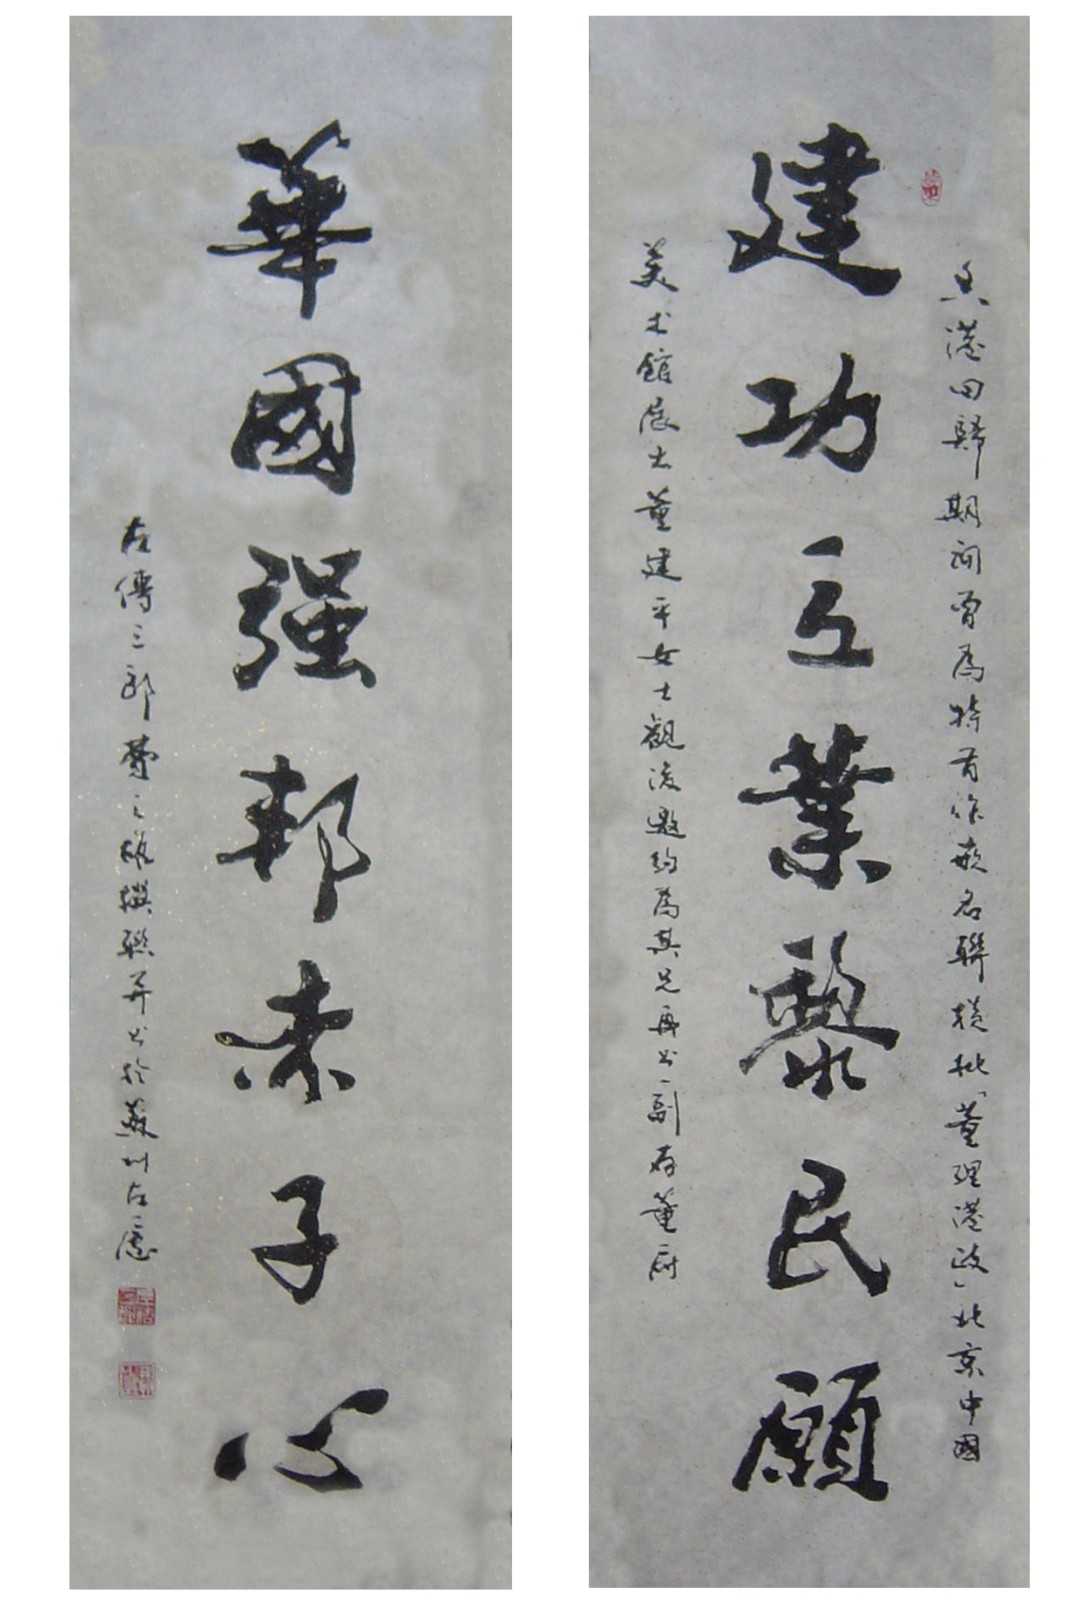 建功立業黎民願
香港回歸期間曾為特首作嵌名聯橫批「董理港政」北京中國
美術館展出董建平女士觀後邀約為其兄再書一副存董府
華國强邦赤子心
左傳三郎 之 撰聯并書於蘇州左廬